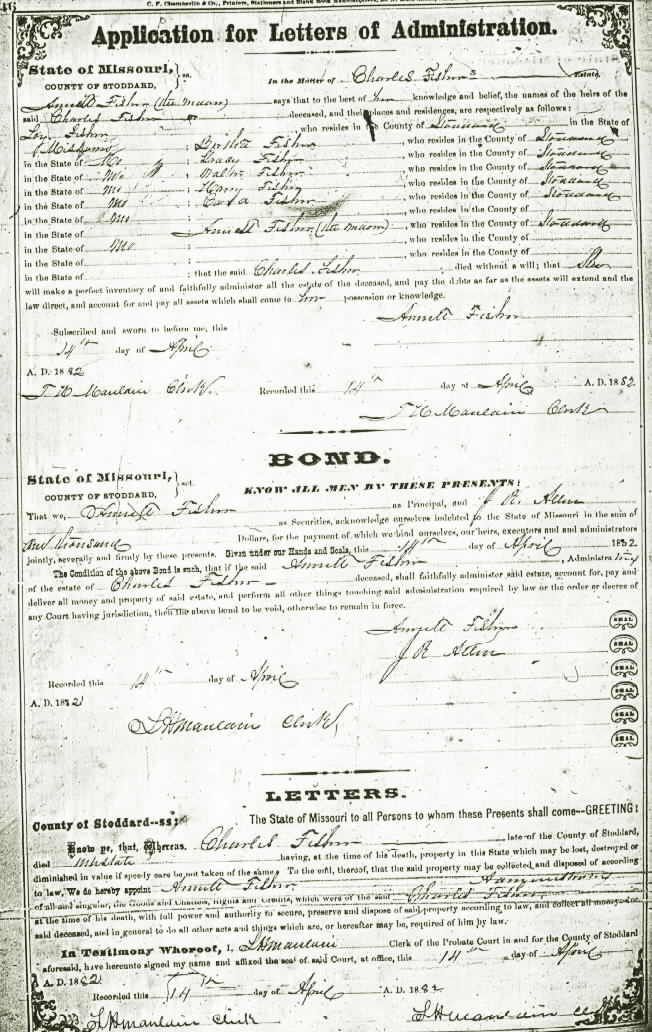 46
C. F. Chamberlin & Co., Printers, Stationers and Blank Book Manufacturers,
Application for Letters of Administration.
State of Missouri, } ss.
COUNTY OF STODDARD,
In the Matter of Charles Fisher's Estate,
Annett Fisher says that to the best of her knowledge and belief, the names of the heirs of the
said Charles Fisher deceased, and their places and residences, are respectively as follows:
Fisher, who resides in the County of Stoddard in the State of
Missouri; Fisher, who resides in the County of Stoddard
in the State of Mo; Grady Fisher, who resides in the County of Stoddard
in the State of Mo; Walter Fisher, who resides in the County of Stoddard
in the State of Mo; Harry Fisher, who resides in the County of Stoddard
in the State of Mo; Fisher, who resides in the County of Stoddard
in the State of Mo; , who resides in the County of
in the State of ; Annett Fisher, who resides in the County of Stoddard
in the State of Mo; , who resides in the County of
in the State of ; that the said Charles Fisher died without a will; that She
will make a perfect inventory of and faithfully administer all the estate of the deceased, and pay the debts as far as the assets will extend and the
law direct, and account for and pay all assets which shall come to her possession or knowledge.
Annett Fisher
Subscribed and sworn to before me, this
14th day of April
A. D. 1882
Clerk. Recorded this 14th day of April A. D. 1882
Clerk
BOND.
State of Missouri, } sct.
COUNTY OF STODDARD,
KNOW ALL MEN BY THESE PRESENTS:
That we, Annett Fisher as Principal, and J R Allen
as Securities, acknowledge ourselves indebted to the State of Missouri in the sum of
thousand Dollars, for the payment of which we bind ourselves, our heirs, executors and administrators
jointly, severally and firmly by these presents. Given under our Hands and Seals, this 14th day of April 1882
The Condition of the above Bond is such, that if the said Annett Fisher, Administratrix
of the estate of Charles Fisher deceased, shall faithfully administer said estate, account for, pay and
deliver all money and property of said estate, and perform all other things touching said administration required by law or the order or decree of
any Court having jurisdiction, then the above bond to be void, otherwise to remain in force.
Annett Fisher SEAL
J R Allen SEAL
SEAL
Recorded this 14th day of April SEAL
A. D. 1882 SEAL
Clerk, SEAL
LETTERS.
County of Stoddard--ss: The State of Missouri to all Persons to whom these Presents shall come--GREETING:
Know ye, that, Whereas, Charles Fisher late of the County of Stoddard,
died intestate having, at the time of his death, property in this State which may be lost, destroyed or
diminished in value if speedy care be not taken of the same; To the end, therefore, that the said property may be collected and disposed of according
to law, We do hereby appoint Annett Fisher
of all and singular, the Goods and Chattels, Rights and Credits, which were of the said Charles Fisher
at the time of his death, with full power and authority to secure, preserve and dispose of said property according to law, and collect all moneys due
said deceased, and in general to do all other acts and things which are, or hereafter may be, required of him by law.
In Testimony Whereof, I, Clerk of the Probate Court in and for the County of Stoddard
aforesaid, have hereunto signed my name and affixed the seal of said Court, at office, this 14th day of April
A. D. 1882
Recorded this 14th day of April A. D. 1882
Clerk